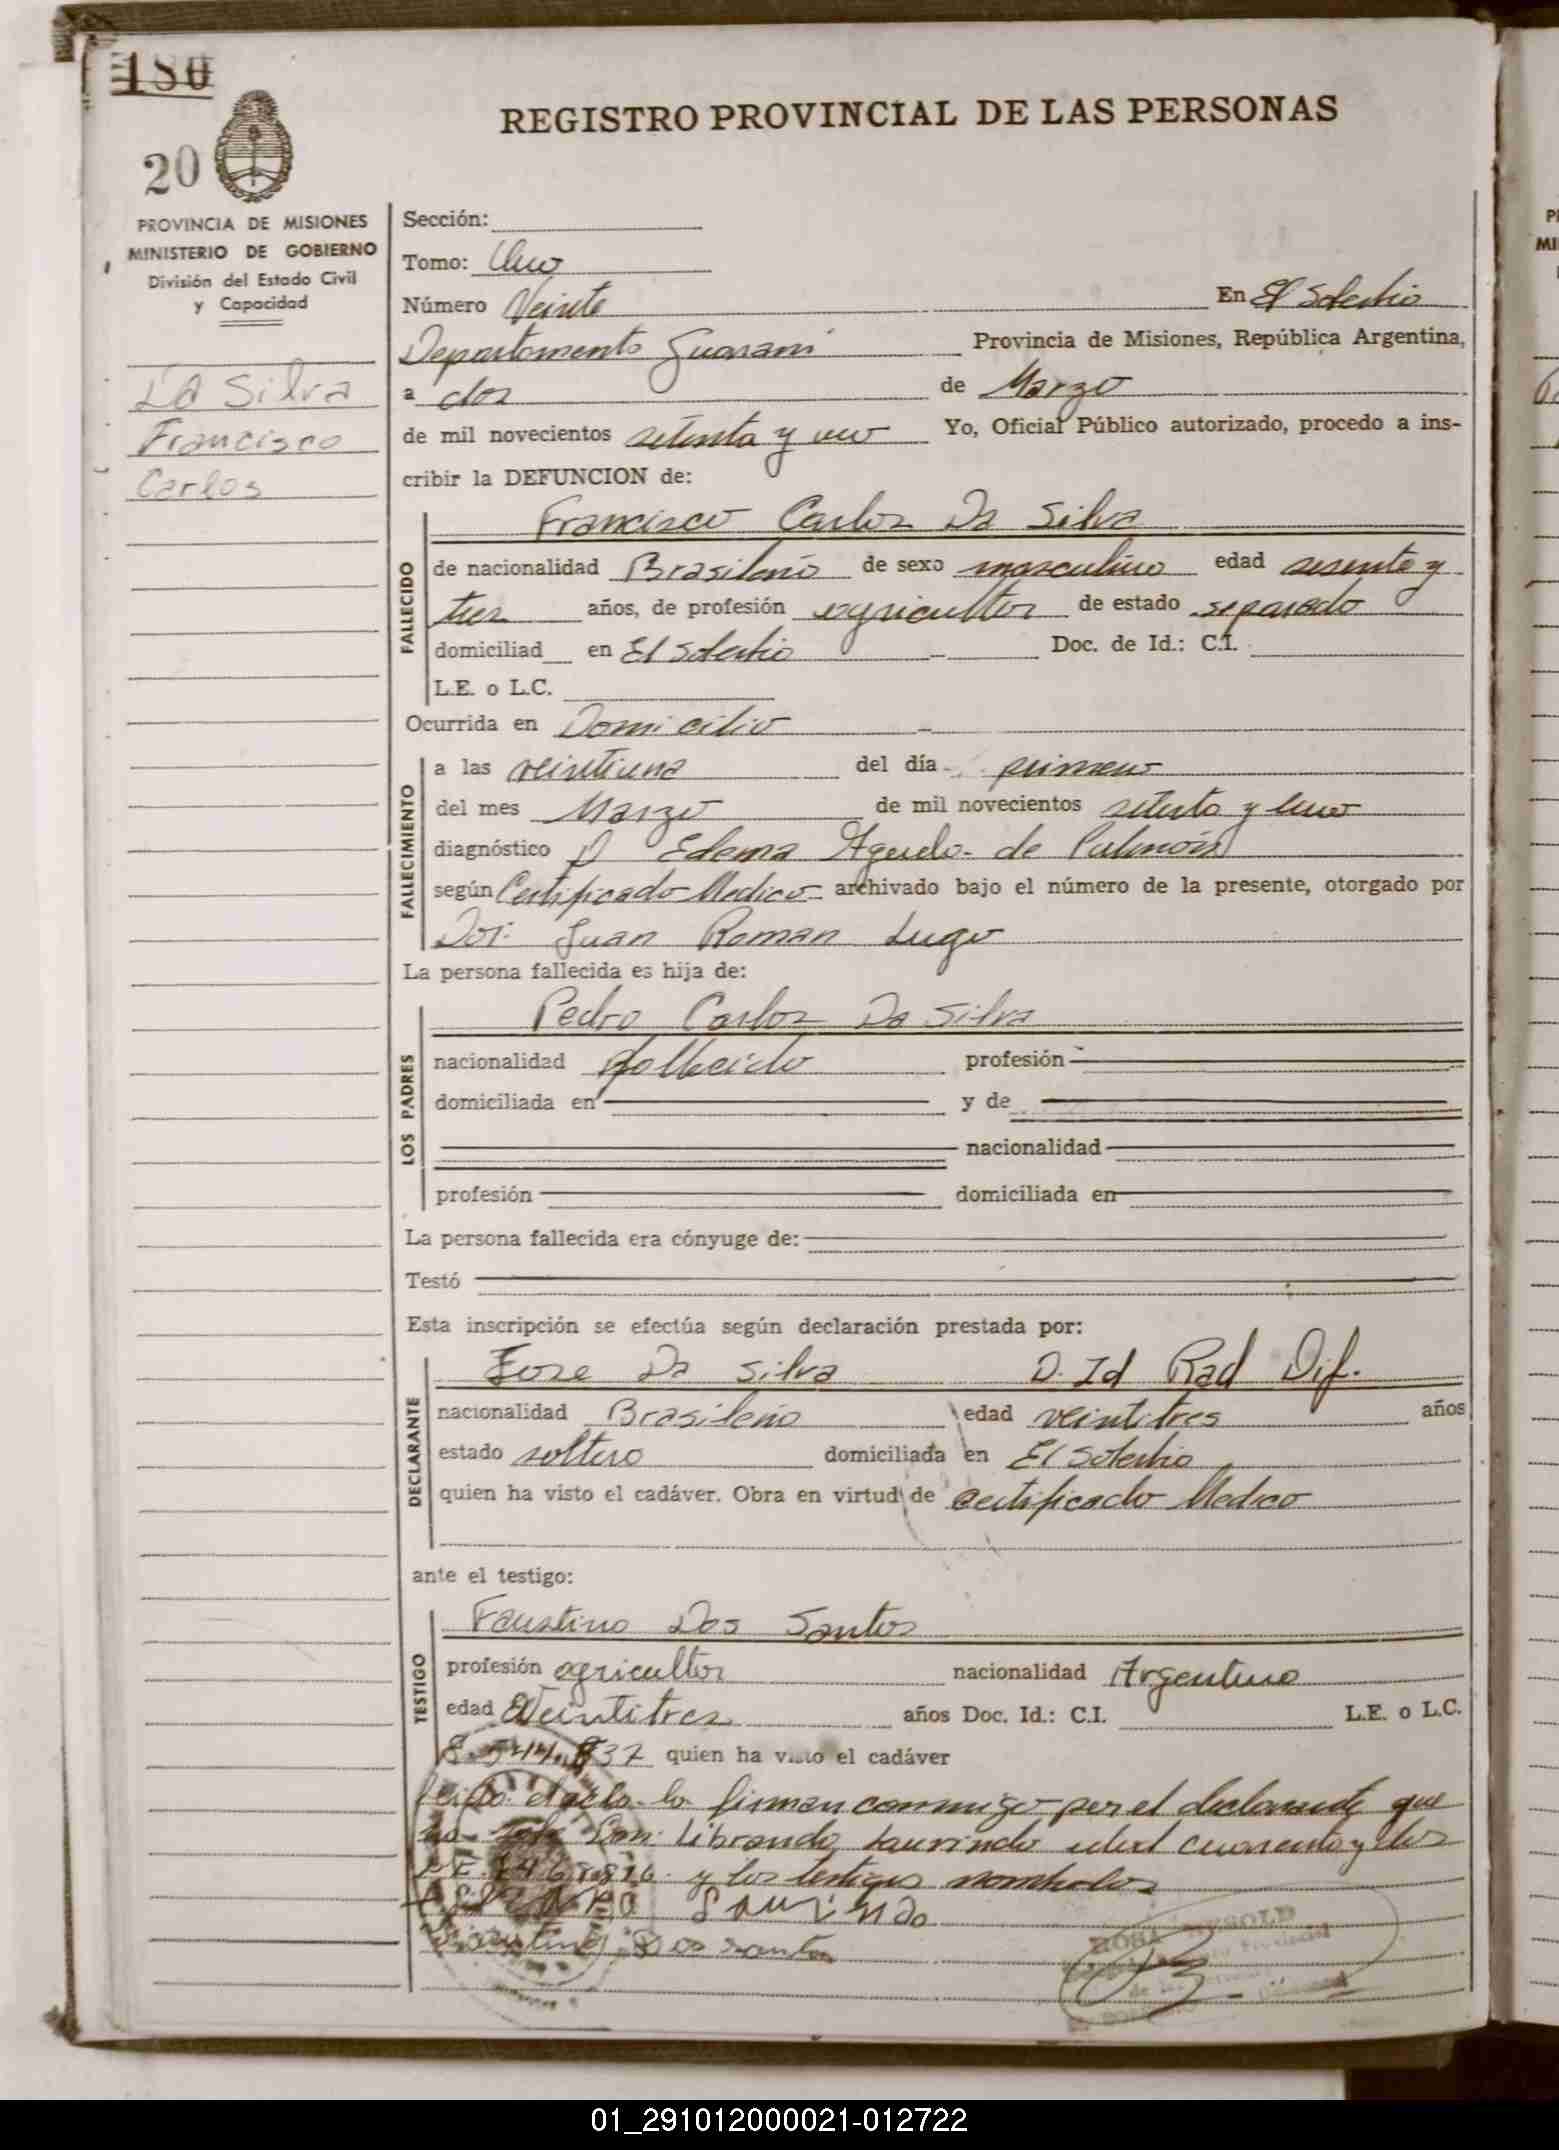 180
20
REGISTRO PROVINCIAL DE LAS PERSONAS
PROVINCIA DE MISIONES
MINISTERIO DE GOBIERNO
División del Estado Civil
y Capacidad
Da Silva
Francisco
Carlos
Sección:
Tomo: Uno
Número Veinte En El Soberbio
Departamento Guarani Provincia de Misiones, República Argentina,
a dos de Marzo
de mil novecientos setenta y uno Yo, Oficial Público autorizado, procedo a ins-
cribir la DEFUNCION de:
Francisco Carlos Da Silva
FALLECIDO
de nacionalidad Brasileño de sexo masculino edad sesenta y
tres años, de profesión agricultor de estado separado
domiciliad en El Soberbio Doc. de Id.: C.I.
L.E. o L.C.
Ocurrida en Domicilio
FALLECIMIENTO
a las veintiuna del día primero
del mes Marzo de mil novecientos setenta y uno
diagnóstico Edema Agudo de Pulmón
según Certificado Medico archivado bajo el número de la presente, otorgado por
Dor. Juan Roman Lugo
La persona fallecida es hija de:
LOS PADRES
Pedro Carlos Da Silva
nacionalidad fallecido profesión
domiciliada en y de
nacionalidad
profesión domiciliada en
La persona fallecida era cónyuge de:
Testó
Esta inscripción se efectúa según declaración prestada por:
DECLARANTE
Jose Da Silva D. Id Rad Dif.
nacionalidad Brasileño edad veintitres años
estado soltero domiciliada en El Soberbio
quien ha visto el cadáver. Obra en virtud de certificado Medico
ante el testigo:
TESTIGO
Faustino Dos Santos
profesión agricultor nacionalidad Argentino
edad Veintitres años Doc. Id.: C.I. L.E. o L.C.
8.544.837 quien ha visto el cadáver
leida el acta la firman conmigo por el declarante que
no Don Librando Laurindo edad cuarenta y dos
y los testigos nombrados
Laurindo
Faustino Dos Santos
ROSA
01_291012000021-012722